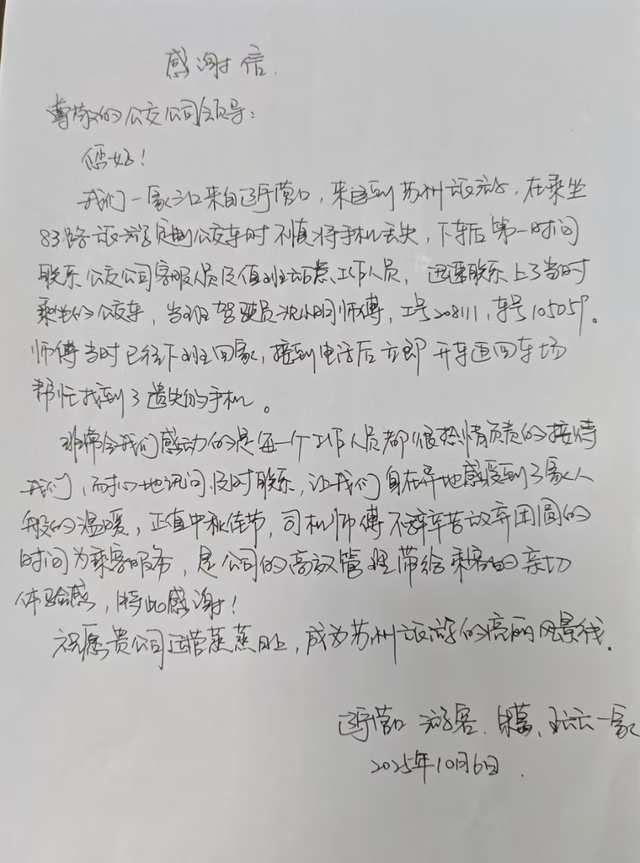 感谢信.
尊敬的公交公司领导：
您好！
我们一家三口来自辽宁营口，来到苏州旅游，在乘坐
83路旅游定制公交车时不慎将手机丢失，下车后第一时间
联系公交公司客服人员及值班站点工作人员，迅速联系上了当时
乘坐的公交车，当班驾驶员沈小明师傅，工号208111，车号105059。
师傅当时已经下班回家，接到电话后立即开车返回车场
帮忙找到了遗失的手机。
非常令我们感动的是每一个工作人员都很热情负责的接待
我们，耐心地询问及时联系，让我们身在异地感受到了家人
般的温暖，正值中秋佳节，司机师傅不辞辛苦放弃团圆的
时间为乘客服务，是公司的高效管理带给乘客的亲切
体验感，特此感谢！
祝愿贵公司运营蒸蒸日上，成为苏州旅游的亮丽风景线。
辽宁营口 游客 一家
2025年10月6日.